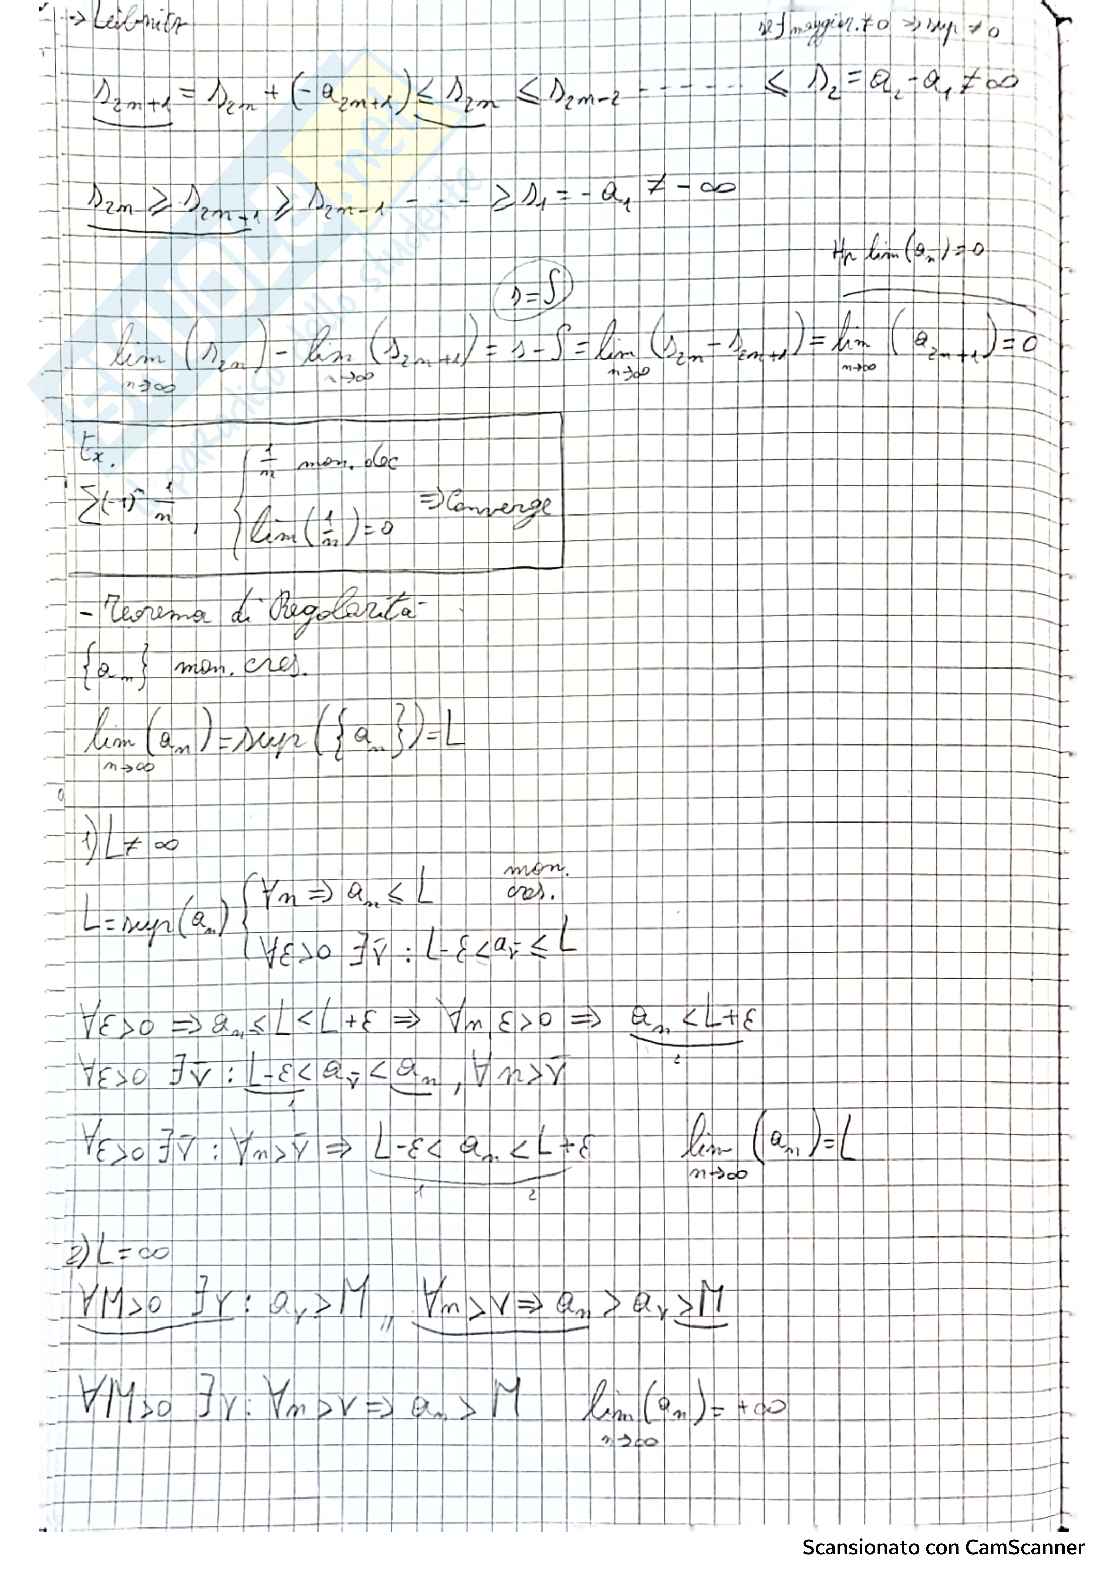 => Leibnitz
s_{2n+1} = s_{2n} + (-a_{2n+1}) ≤ s_{2n} ≤ s_{2n-2} ------ ≤ s_2 = a_2 - a_1 ≠ ∞
s_{2n} ≥ s_{2n+1} ≥ s_{2n-1} - - - - ≥ s_1 = -a_1 ≠ -∞
Hp lim(a_n)=0
s=S
lim_{n→∞} (s_{2n}) - lim_{n→∞} (s_{2n+1}) = s-S = lim_{n→∞} (s_{2n} - s_{2n+1}) = lim_{n→∞} (a_{2n+1}) = 0
Ex.
∑(-1)^n 1/n , { 1/n mon. dec
lim(1/n)=0 => Converge
- Teorema di Regolarità -
{a_n} mon. cres.
lim_{n→∞} (a_n) = sup({a_n}) = L
1) L ≠ ∞
mon. cres.
L = sup(a_n) { ∀n => a_n ≤ L
∀ε>0 ∃ν̄ : L-ε < a_ν̄ ≤ L
∀ε>0 => a_n ≤ L < L+ε => ∀n, ε>0 => a_n < L+ε
2
∀ε>0 ∃ν̄ : L-ε < a_ν̄ < a_n , ∀n>ν̄
1
∀ε>0 ∃ν̄ : ∀n>ν̄ => L-ε < a_n < L+ε lim_{n→∞} (a_n) = L
1 2
2) L = ∞
∀M>0 ∃ν : a_ν > M ,, ∀n>ν => a_n > a_ν > M
∀M>0 ∃ν : ∀n>ν => a_n > M lim_{n→∞} (a_n) = +∞
EHUB.net
Scansionato con CamScanner